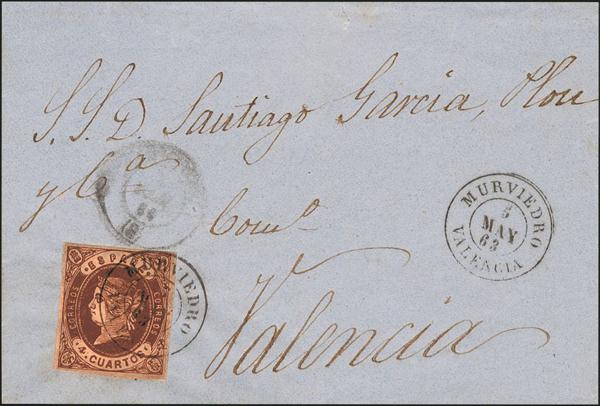 S. S. D. Santiago Garcia, Plou
y Ca
Comº
Valencia
MURVIEDRO
5
MAY
63
VALENCIA
CORREOS
CORREOS
4 CUARTOS
MURVIEDRO